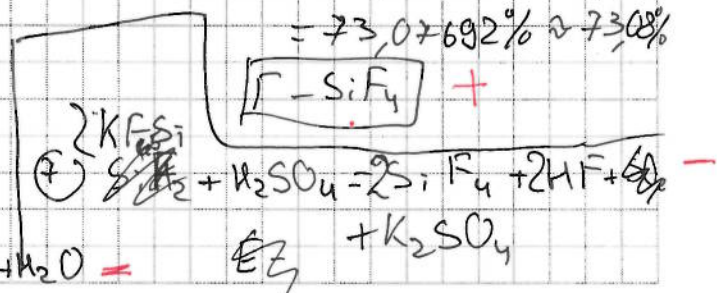 = 73,07692% ≈ 73,08%
Г - SiF₄ +
2KF₅Si
⑦ + H₂SO₄ = 2SiF₄ + 2HF + −
+ K₂SO₄
+H₂O =